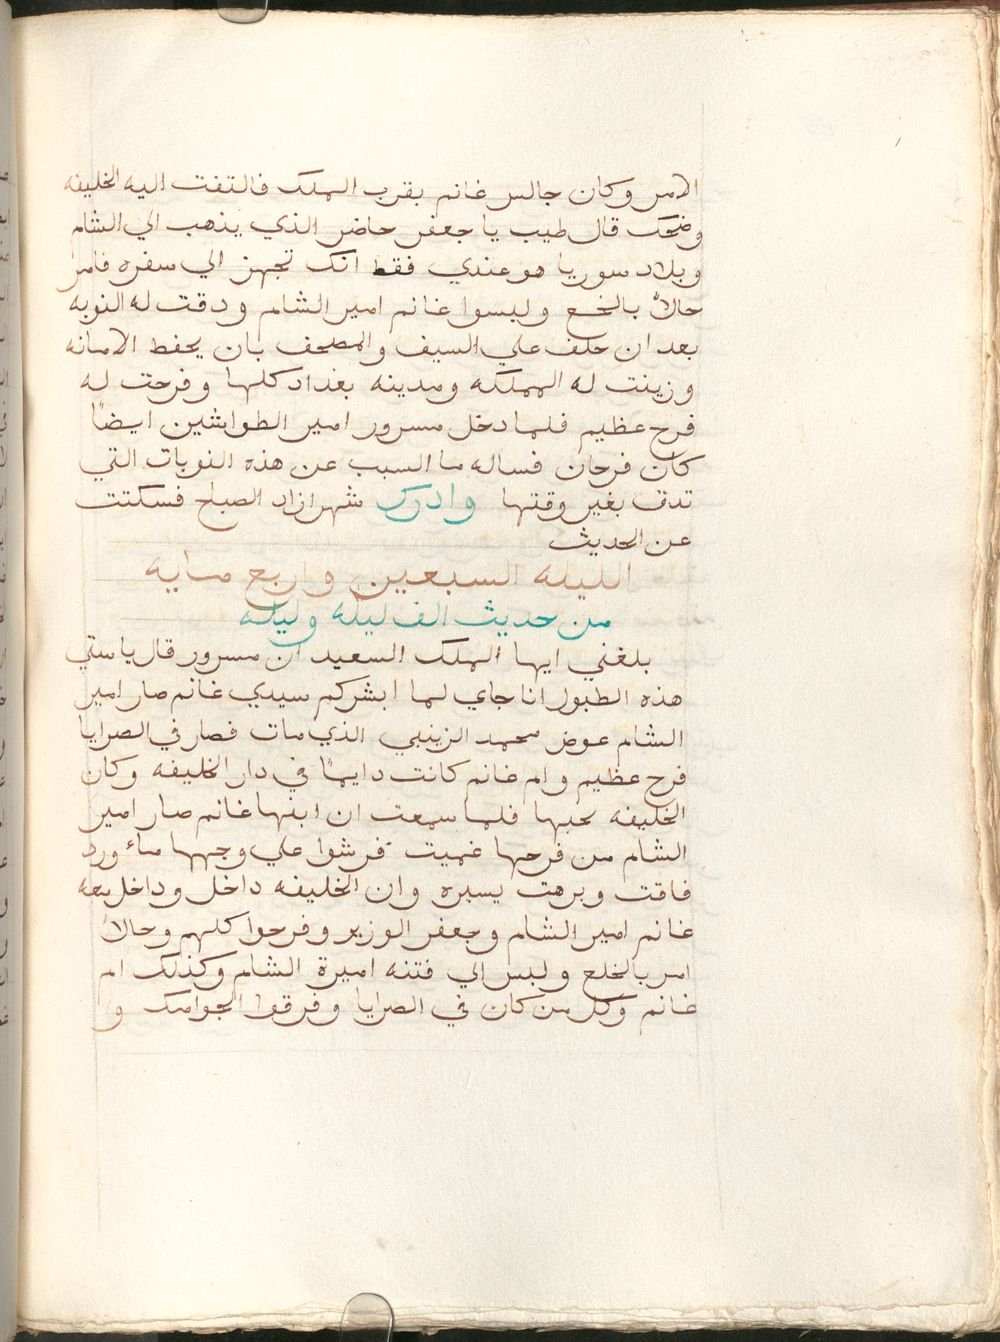 الامر وكان جالس غانم بقرب الملك فالتفت اليه الخليفه
وضحك قال طيب يا جعفر حاضر الذي يذهب الي الشام
وبلاد سوريا هو عندي فقط انك تجهز الي سفره فامر
حالاً بالخلع ولبسوا غانم امير الشام ودقت له النوبه
بعد ان حلف علي السيف والمصحف بان يحفظ الامانه
وزينت له المملكه ومدينه بغداد كلها وفرحت له
فرح عظيم فلما دخل مسرور امير الطواشين ايضاً
كان فرحان فساله ما السبب عن هذه النوبات التي
تدق بغير وقتها وادرك شهرازاد الصباح فسكتت
عن الحديث
الليله السبعين واربع مايه
من حديث الف ليله وليله
بلغني ايها الملك السعيد ان مسرور قال يا ستي
هذه الطبول انا جاي لما ابشركم سيدي غانم صار امير
الشام عوض محمد الزينبي الذي مات فصار في الصرايا
فرح عظيم وام غانم كانت دايماً في دار الخليفه وكان
الخليفه يحبها فلما سمعت ان ابنها غانم صار امير
الشام من فرحها غميت فرشوا علي وجهها ماء ورد
فاقت وبرهت يسيره وان الخليفه داخل وداخل معه
غانم امير الشام وجعفر الوزير وفرحوا كلهم وحالاً
امر بالخلع ولبس الي فتنه اميرة الشام وكذلك ام
غانم وكل من كان في الصرايا وفرقوا الجوامك و